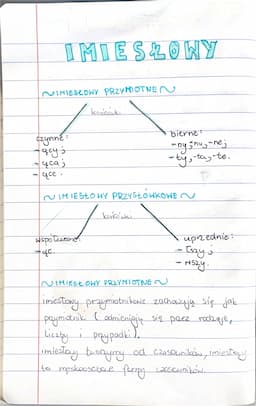 IMIESŁOWY
~ IMIESŁOWY PRZYMIOTNE ~
końcówki
czynne:
- ący;
- ąca;
- ące.
bierne:
- ny; na, -ne;
- ty, -ta, -te.
~ IMIESŁOWY PRZYSŁÓWKOWE ~
końcówki
współczesne:
- ąc.
uprzednie:
- łszy;
- wszy.
~ IMIESŁOWY PRZYMIOTNE ~
imiesłowy przymiotnikowe zachowują się jak
przymiotnik (odmieniają się przez rodzaje,
liczby i przypadki).
imiesłowy tworzymy od czasowników, imiesłowy
to nieosobowe formy czasowników.